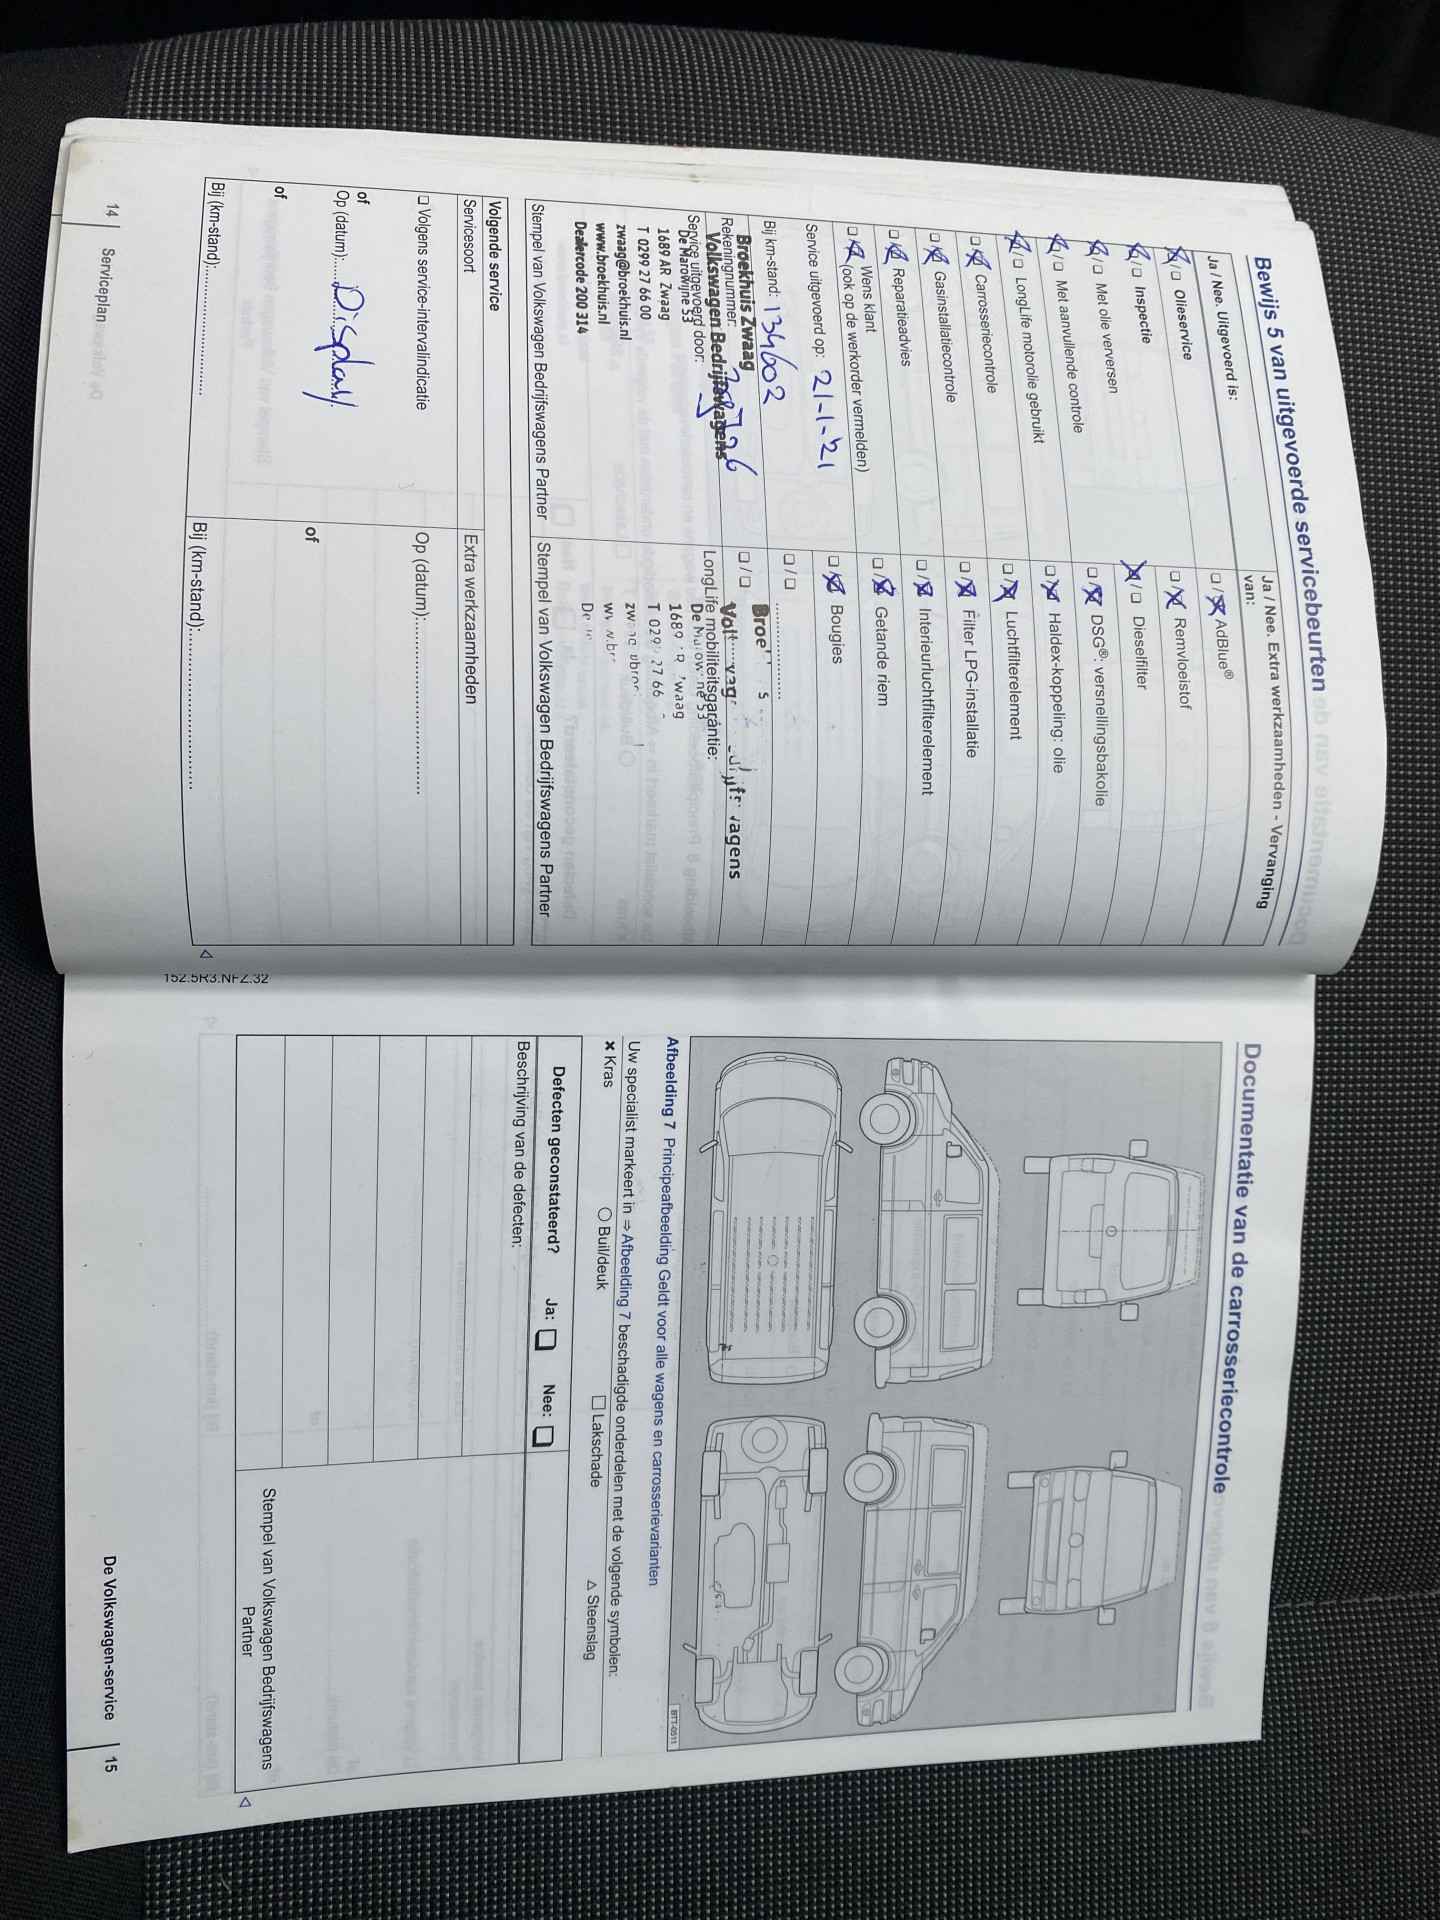 Bewijs 5 van uitgevoerde servicebeurten
Ja / Nee. Uitgevoerd is:
☒/☐ Olieservice
☒/☐ Inspectie
☒/☐ Met olie verversen
☒/☐ Met aanvullende controle
☒/☐ LongLife motorolie gebruikt
☐/☒ Carrosseriecontrole
☐/☒ Gasinstallatiecontrole
☐/☒ Reparatieadvies
☐/☒ Wens klant
(ook op de werkorder vermelden)
Service uitgevoerd op: 21-1-'21
Bij km-stand: 134602
Rekeningnummer:
Service uitgevoerd door:
Broekhuis Zwaag
Volkswagen Bedrijfswagens
De Marowijne 53
1689 AR Zwaag
T 0299 27 66 00
zwaag@broekhuis.nl
www.broekhuis.nl
Dealercode 200 314
Stempel van Volkswagen Bedrijfswagens Partner
Ja / Nee. Extra werkzaamheden - Vervanging
van:
☐/☒ AdBlue®
☐/☒ Remvloeistof
☒/☐ Dieselfilter
☐/☒ DSG®: versnellingsbakolie
☐/☒ Haldex-koppeling: olie
☐/☒ Luchtfilterelement
☐/☒ Filter LPG-installatie
☐/☒ Interieurluchtfilterelement
☐/☒ Getande riem
☐/☒ Bougies
☐/☐ ....................
☐/☐
LongLife mobiliteitsgarantie:
De Marowijne 53
1689 Zwaag
T 0299 27 66
Stempel van Volkswagen Bedrijfswagens Partner
Volgende service
Servicesoort
☐ Volgens service-intervalindicatie
of
Op (datum): Display
of
Bij (km-stand):
Extra werkzaamheden
Op (datum):
of
Bij (km-stand):
14 Serviceplan
152.5R3.NFZ.32
Documentatie van de carrosseriecontrole
BTT-0511
Afbeelding 7 Principeafbeelding Geldt voor alle wagens en carrosserievarianten
Uw specialist markeert in ⇒ Afbeelding 7 beschadigde onderdelen met de volgende symbolen:
✖ Kras ○ Buil/deuk ☐ Lakschade △ Steenslag
Defecten geconstateerd? Ja: ☐ Nee: ☐
Beschrijving van de defecten:
Stempel van Volkswagen Bedrijfswagens
Partner
De Volkswagen-service 15